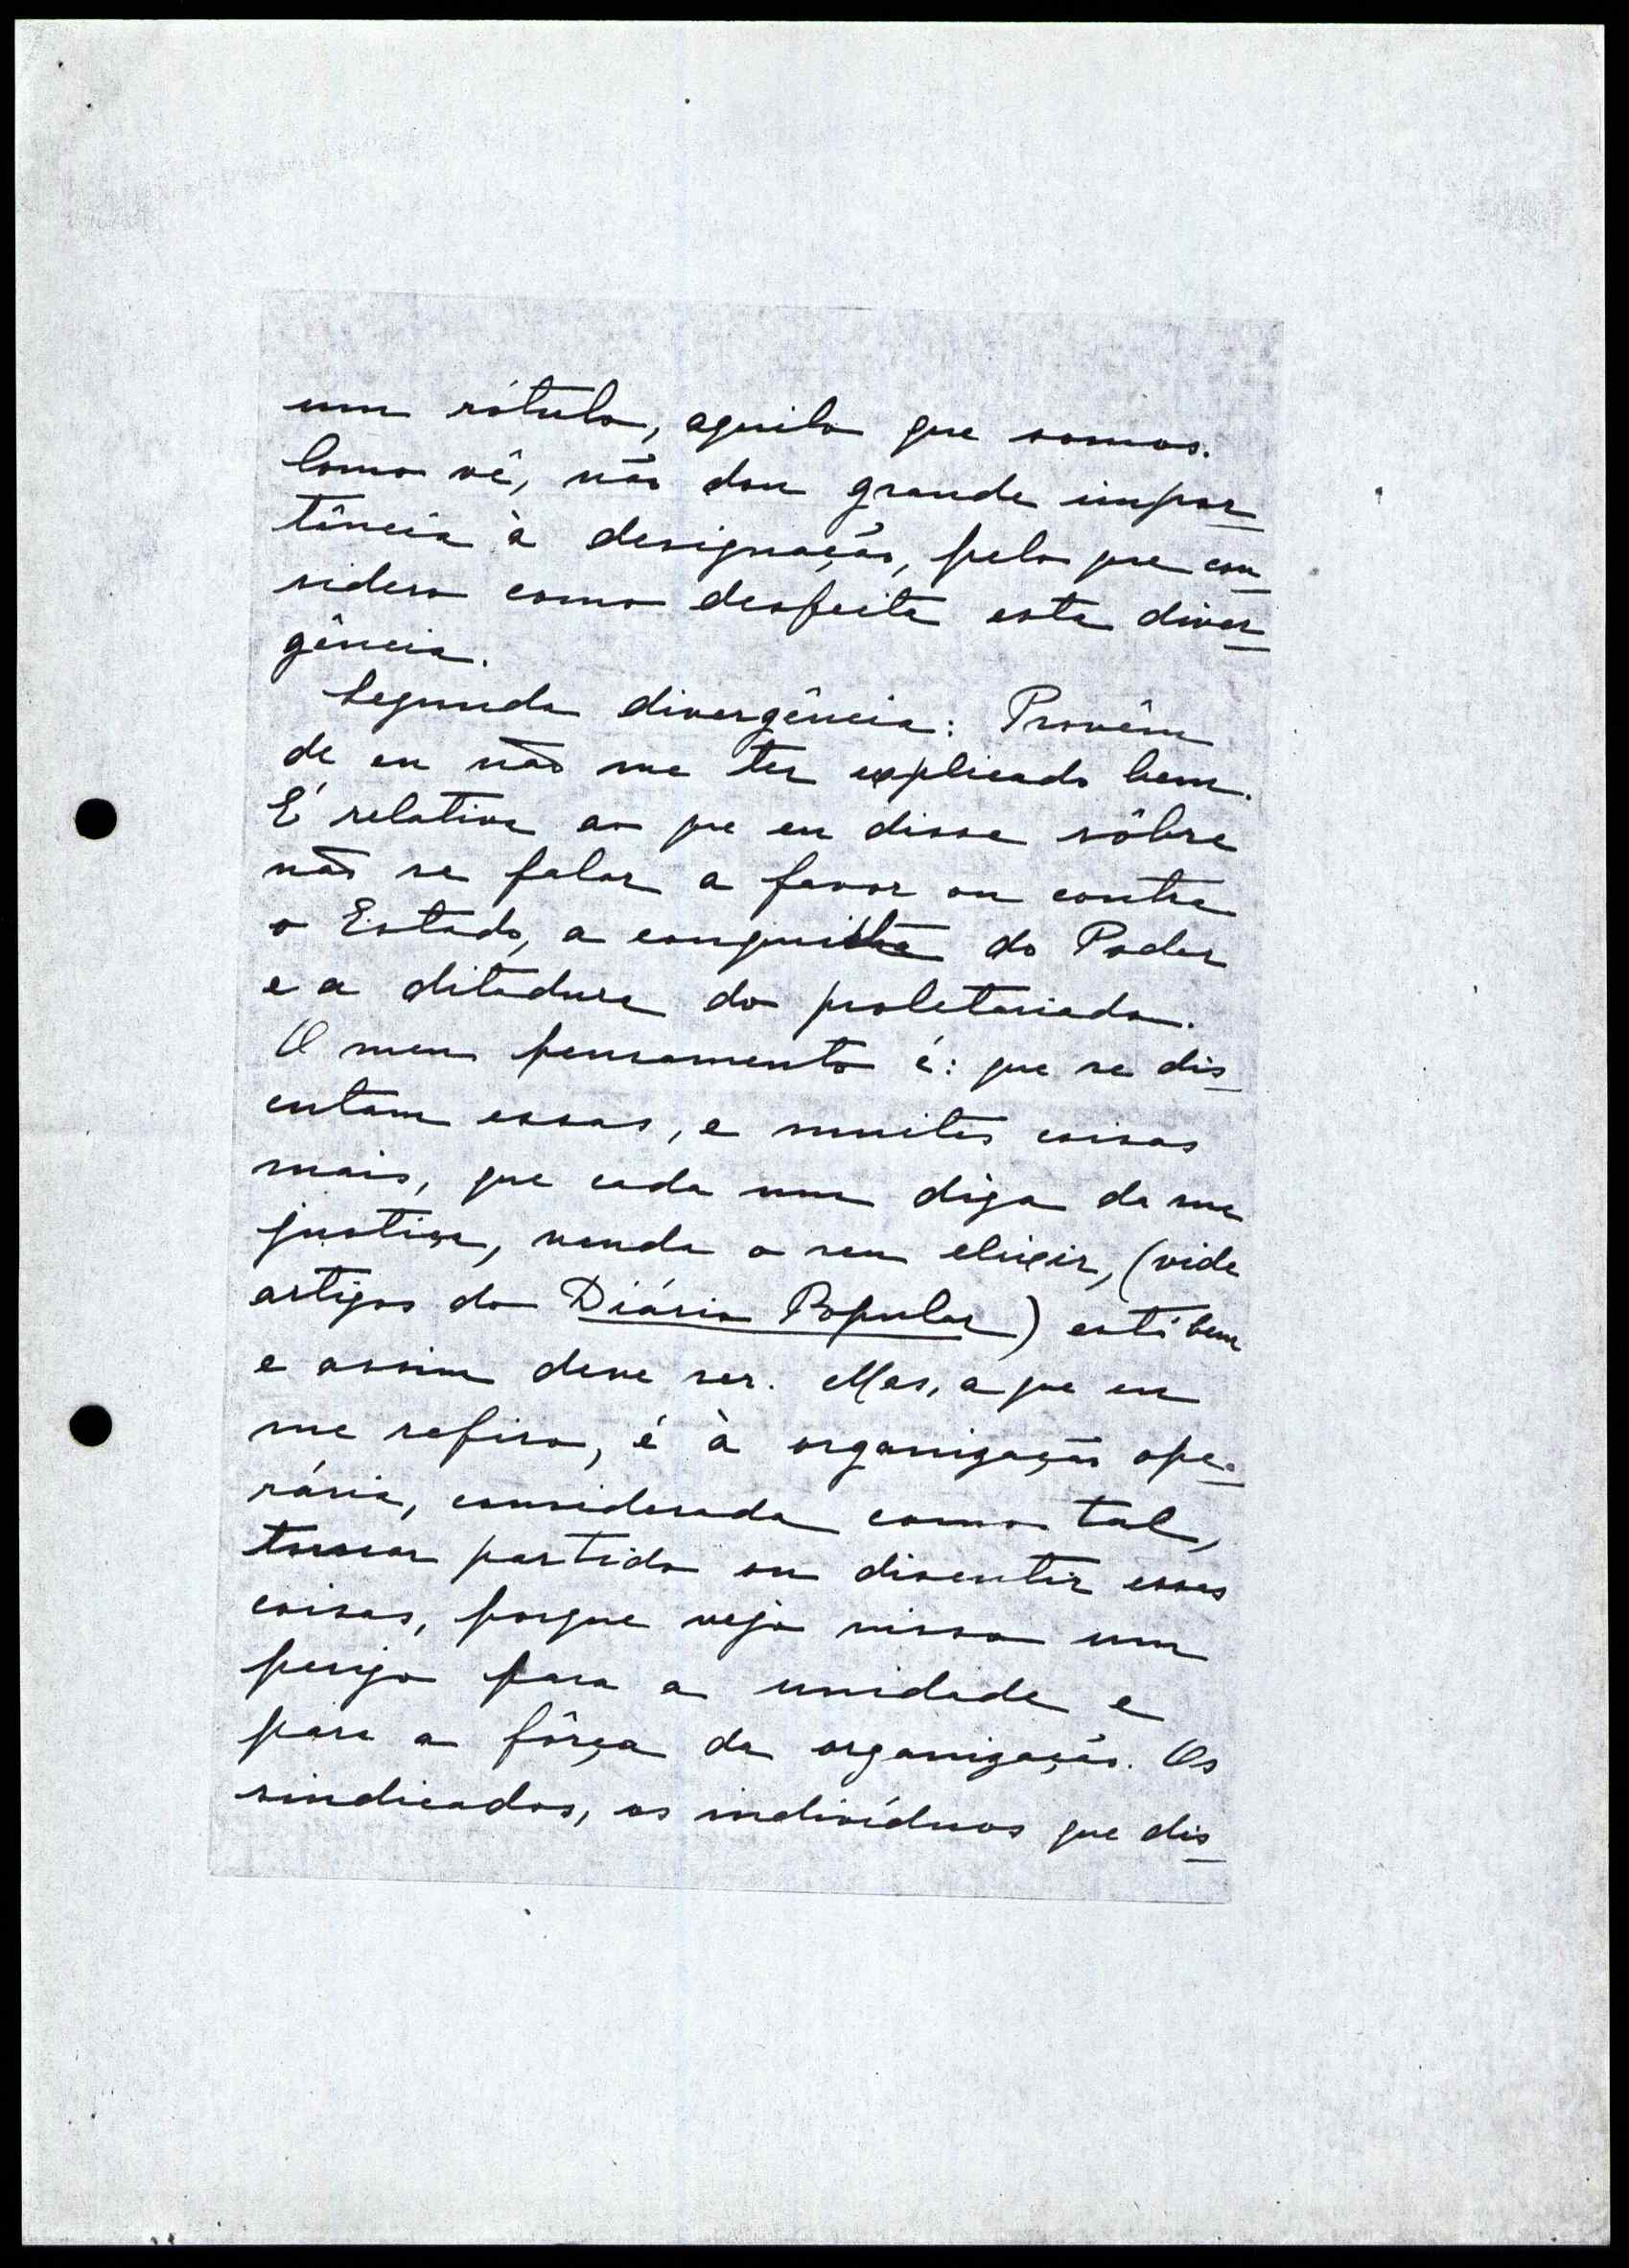 um rótulo, aquilo que somos.
Como vê, não dou grande impor-
tância à designação, pelo que con-
sidero como desfeita esta diver-
gência.
Segunda divergência: Provém
de eu não me ter explicado bem.
É relativa ao que eu disse sôbre
não se falar a favor ou contra
o Estado, a conquista do Poder
e a ditadura do proletariado.
O meu pensamento é: que se dis-
cutam essas, e muitas coisas
mais, que cada um diga da sua
justiça, venda o seu elixir, (vide
artigos do Diário Popular) está bem
e assim deve ser. Mas, a que eu
me refiro, é à organização ope-
rária, considerada como tal,
tomar partido ou discutir essas
coisas, porque vejo nisso um
perigo para a unidade e
para a fôrça da organização. Os
sindicados, os indivíduos que dis-